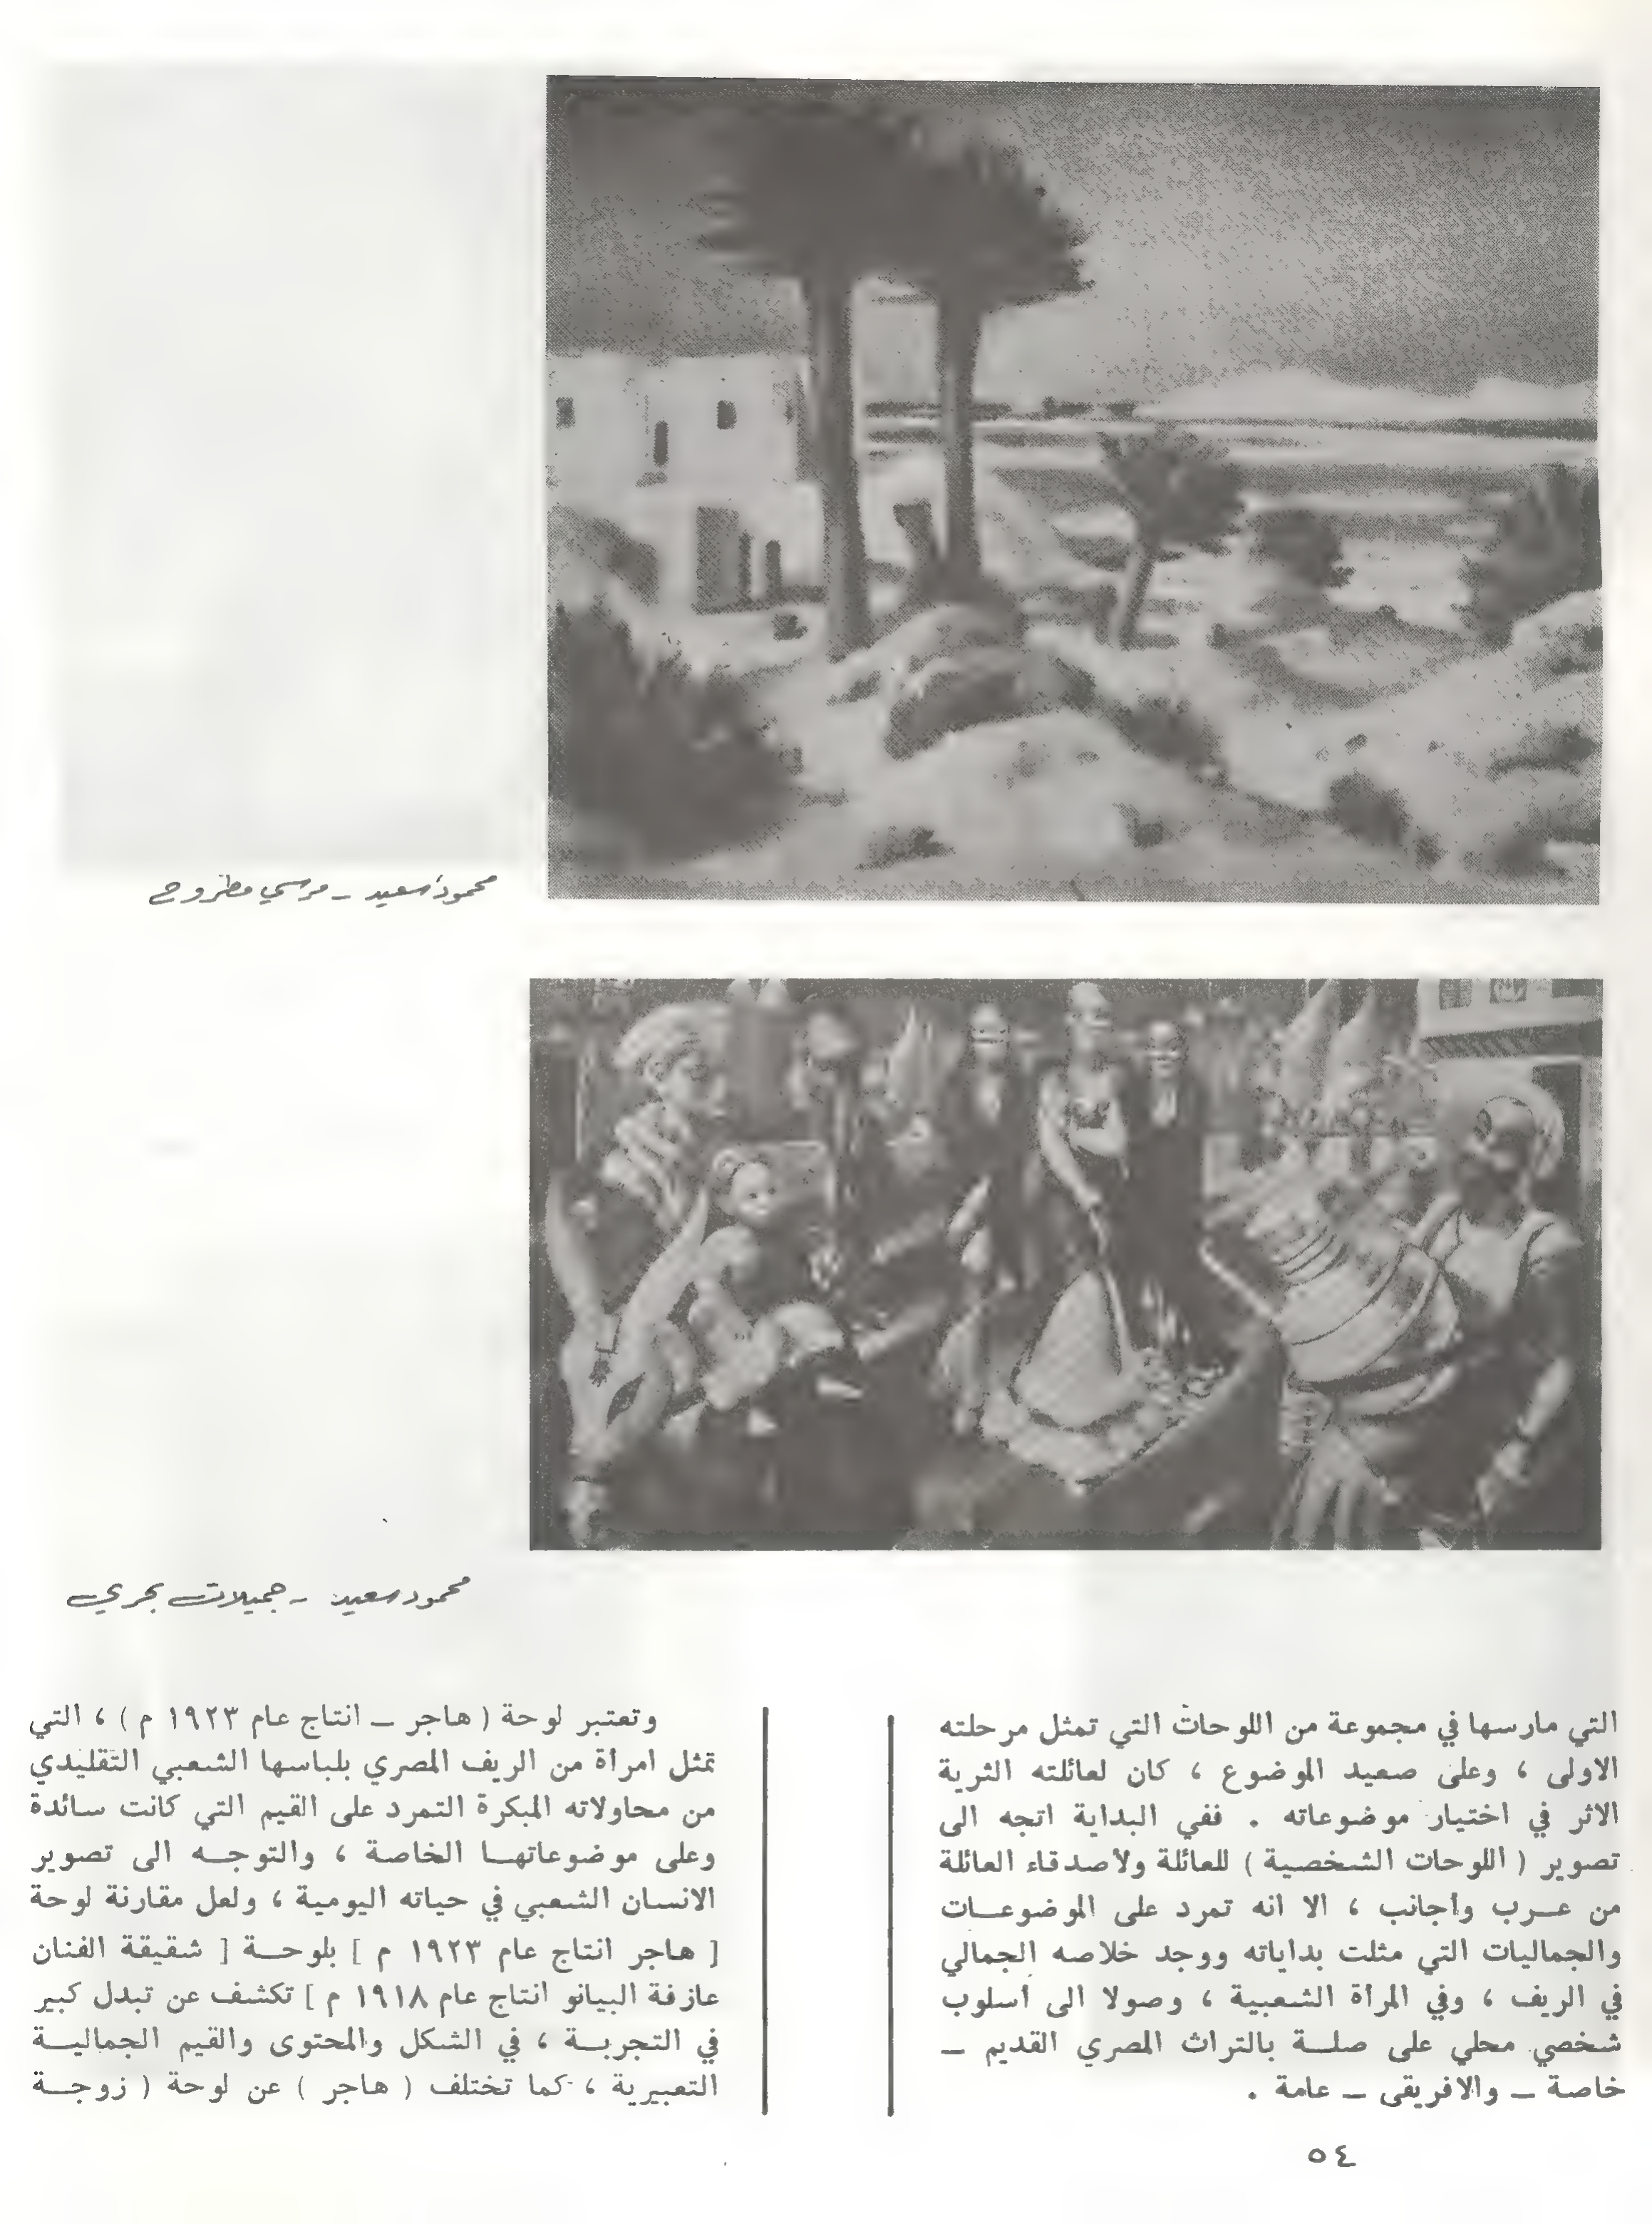 محمود سعيد - مرسي مطروح
محمود سعيد - جميلات بحري
التي مارسها في مجموعة من اللوحات التي تمثل مرحلته
الاولى ، وعلى صعيد الموضوع ، كان لعائلته الثرية
الاثر في اختيار موضوعاته . ففي البداية اتجه الى
تصوير ( اللوحات الشخصية ) للعائلة ولأصدقاء العائلة
من عــرب وأجانب ، الا انه تمرد على الموضوعــات
والجماليات التي مثلت بداياته ووجد خلاصه الجمالي
في الريف ، وفي المرأة الشعبية ، وصولا الى أسلوب
شخصي محلي على صلــة بالتراث المصري القديم —
خاصة — والافريقى — عامة .
وتعتبر لوحة ( هاجر — انتاج عام ١٩٢٣ م ) ، التي
تمثل امرأة من الريف المصري بلباسها الشعبي التقليدي
من محاولاته المبكرة التمرد على القيم التي كانت سائدة
وعلى موضوعاتهــا الخاصة ، والتوجــه الى تصوير
الانسان الشعبي في حياته اليومية ، ولعل مقارنة لوحة
[ هاجر انتاج عام ١٩٢٣ م ] بلوحــة [ شقيقة الفنان
عازفة البيانو انتاج عام ١٩١٨ م ] تكشف عن تبدل كبير
في التجربــة ، في الشكل والمحتوى والقيم الجماليــة
التعبيرية ، كما تختلف ( هاجر ) عن لوحة ( زوجــة
٥٤